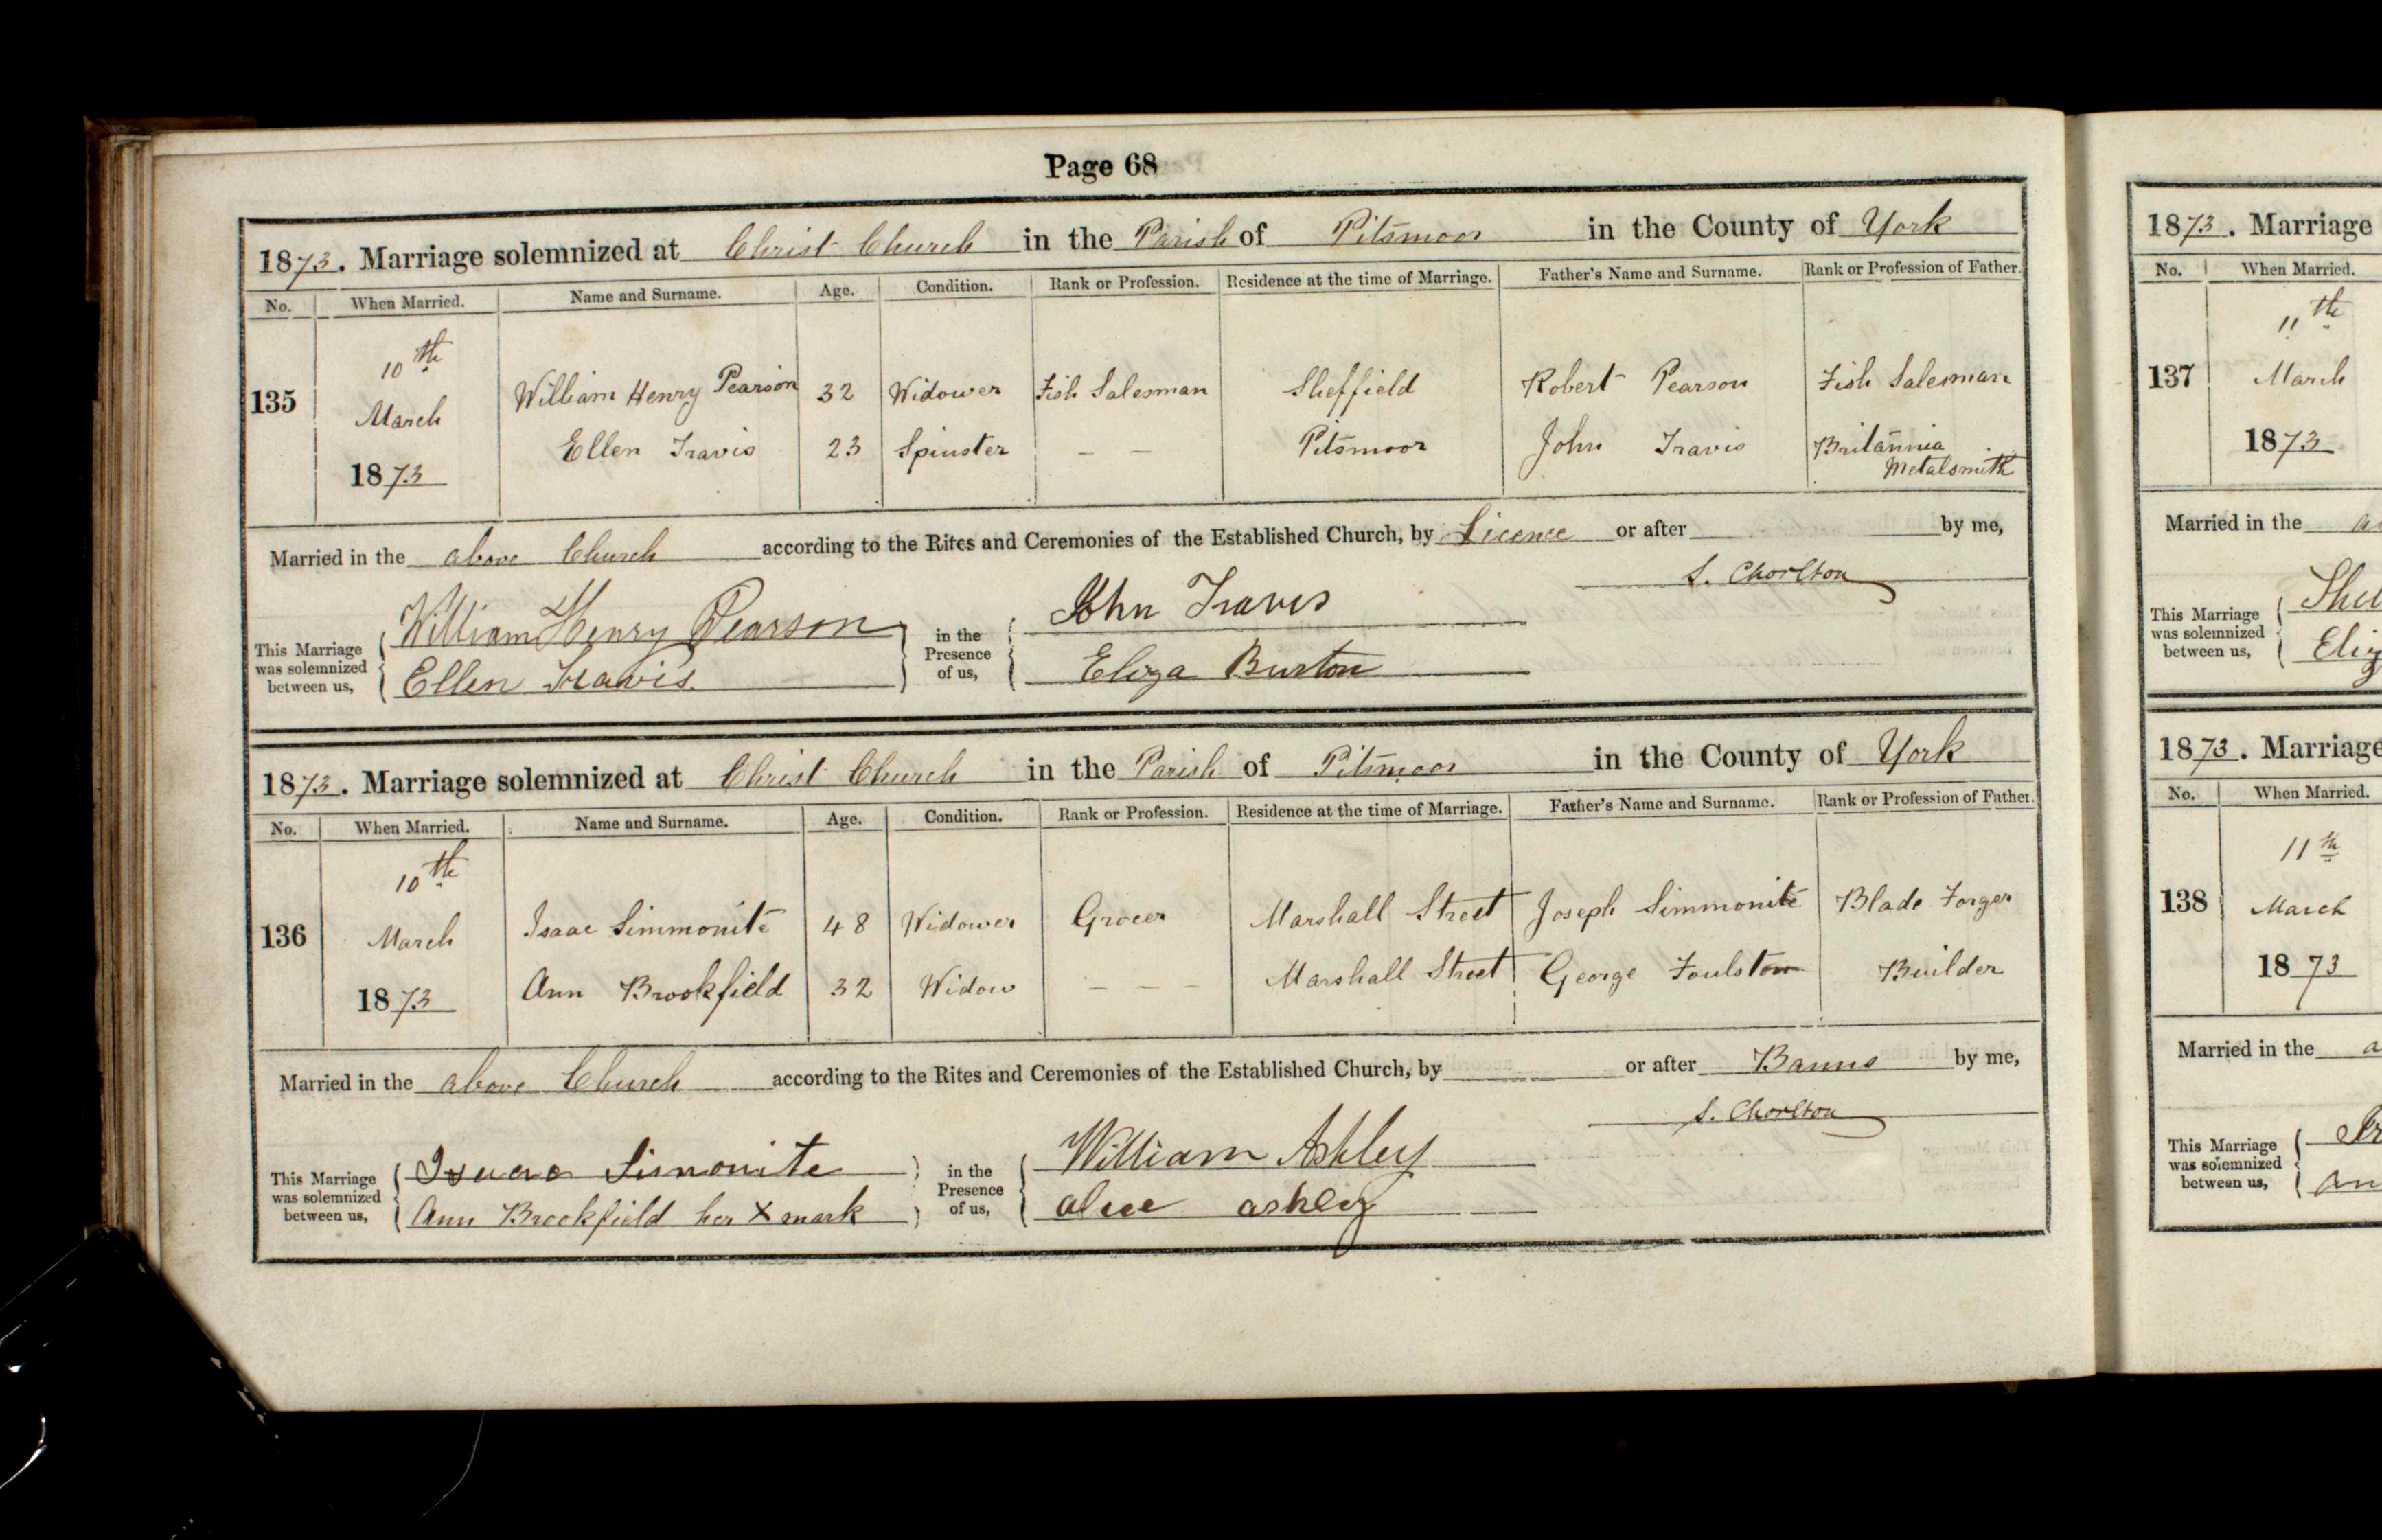 Page 68
1873. Marriage solemnized at Christ Church in the Parish of Pitsmoor in the County of York
No. When Married. Name and Surname. Age. Condition. Rank or Profession. Residence at the time of Marriage. Father's Name and Surname. Rank or Profession of Father.
10th
135 March William Henry Pearson 32 Widower Fish Salesman Sheffield Robert Pearson Fish Salesman
1873 Ellen Travis 23 Spinster – – Pitsmoor John Travis Britannia
Metalsmith
Married in the above Church according to the Rites and Ceremonies of the Established Church, by Licence or after by me,
S. Chorlton
This Marriage was solemnized between us, William Henry Pearson in the Presence of us, John Travis
Ellen Travis. Eliza Burton
1873. Marriage solemnized at Christ Church in the Parish of Pitsmoor in the County of York
No. When Married. Name and Surname. Age. Condition. Rank or Profession. Residence at the time of Marriage. Father's Name and Surname. Rank or Profession of Father.
10th
136 March Isaac Simmonite 48 Widower Grocer Marshall Street Joseph Simmonite Blade Forger
1873 Ann Brookfield 32 Widow – – – Marshall Street George Foulston Builder
Married in the above Church according to the Rites and Ceremonies of the Established Church, by or after Banns by me,
S. Chorlton
This Marriage was solemnized between us, Simonite in the Presence of us, William Ashley
Ann Brookfield her X mark alice ashley
1873. Marriage
No. When Married.
11th
137 March
1873
Married in the
This Marriage
was solemnized
between us,
1873. Marriage
No. When Married.
11th
138 March
1873
Married in the
This Marriage
was solemnized
between us,